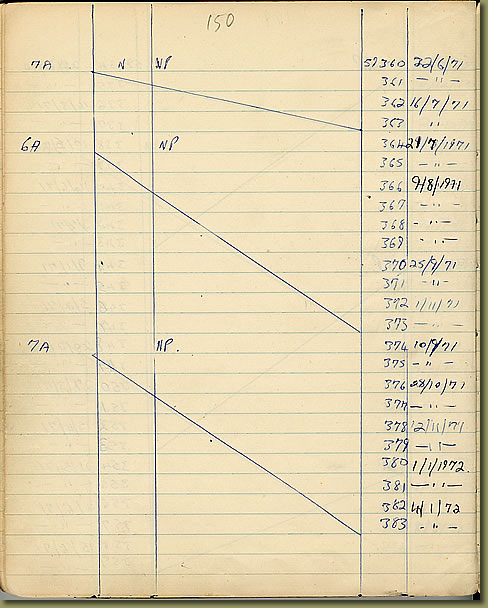 150
7A N NP 57360 22/6/71
361 - " -
362 16/7/71
363 "
6A NP 364 29/7/1971
365 - " -
366 9/8/1971
367 - " -
368 - " -
369 - " -
370 25/9/71
371 - " -
372 1/11/71
373 - " -
7A NP. 374 10/9/71
375 - " -
376 28/10/71
377 - " -
378 12/11/71
379 - " -
380 1/1/1972
381 - " -
382 4/1/72
383 - " -